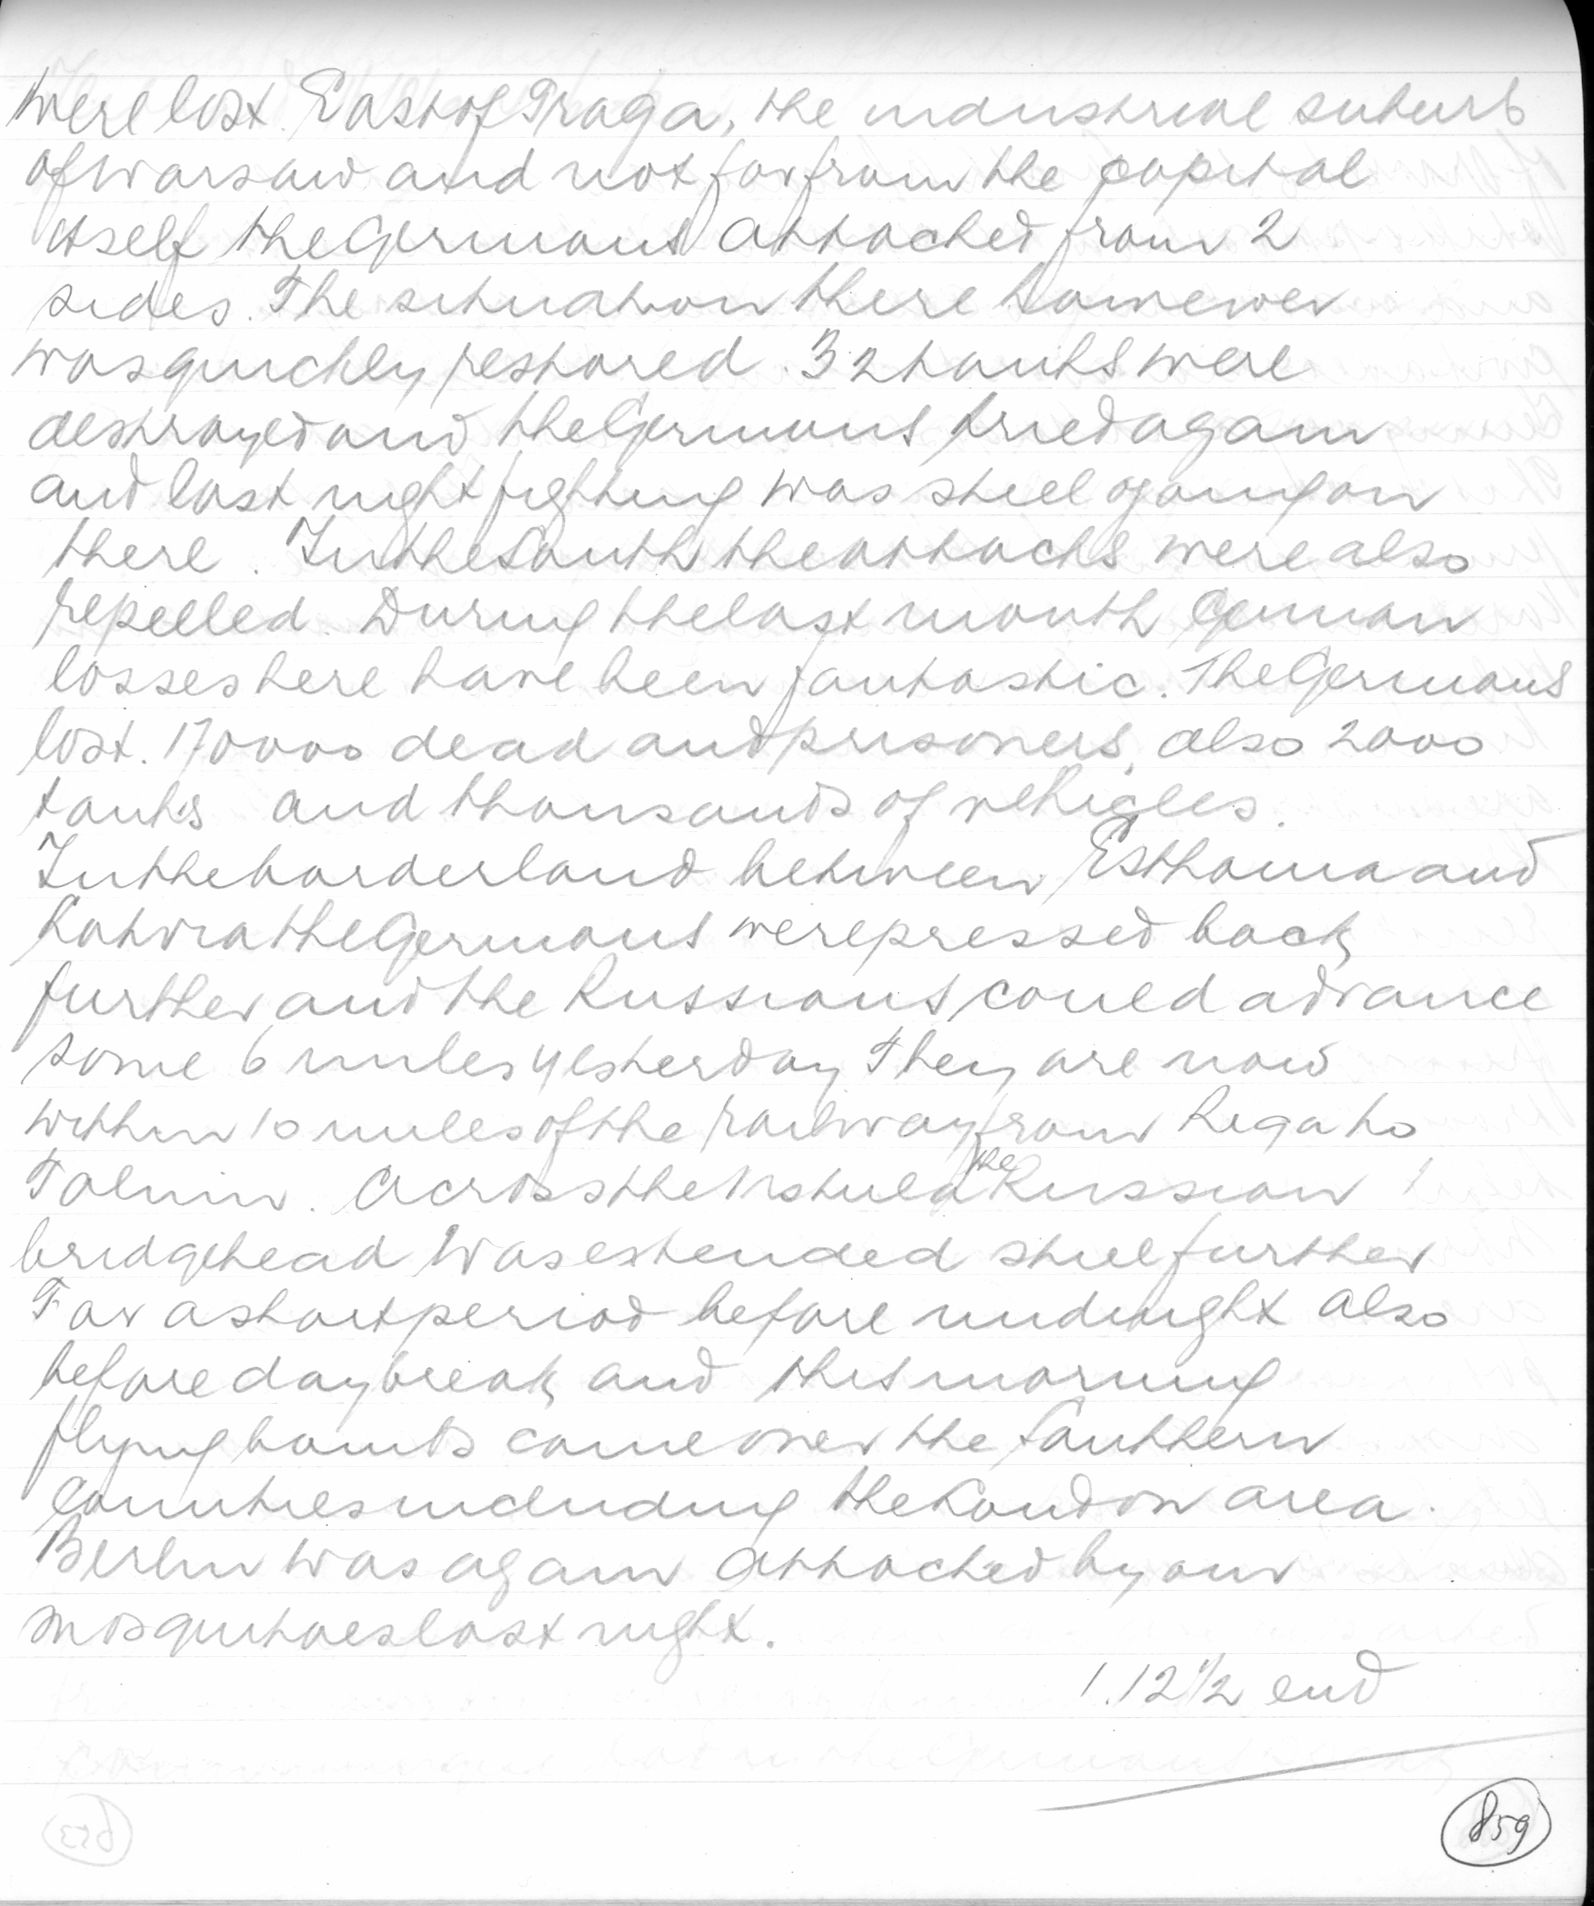 were lost. East of Praga, the industrial suburb
of Warsaw and not far from the capital
itself the Germans attacked from 2
sides. The situation there however
was quickly restored. 32 tanks were
destroyed and the Germans tried again
and last night fighting was still going on
there. In the South the attacks were also
repelled. During the last month German
losses here have been fantastic. The Germans
lost. 170000 dead and prisoners, also 2000
tanks and thousands of vehicles.
In the borderland between Esthonia and
Latvia the Germans were pressed back
further and the Russians could advance
some 6 miles yesterday They are now
within 10 miles of the railway from Riga to
Talnin. Across the Vistula the Russian
bridgehead was extended still further
For a short period before midnight also
before daybreak and this morning
flying bombs came over the Southern
Counties including the London area.
Berlin was again attacked by our
mosquitoes last night.
1.12 1/2 end
859